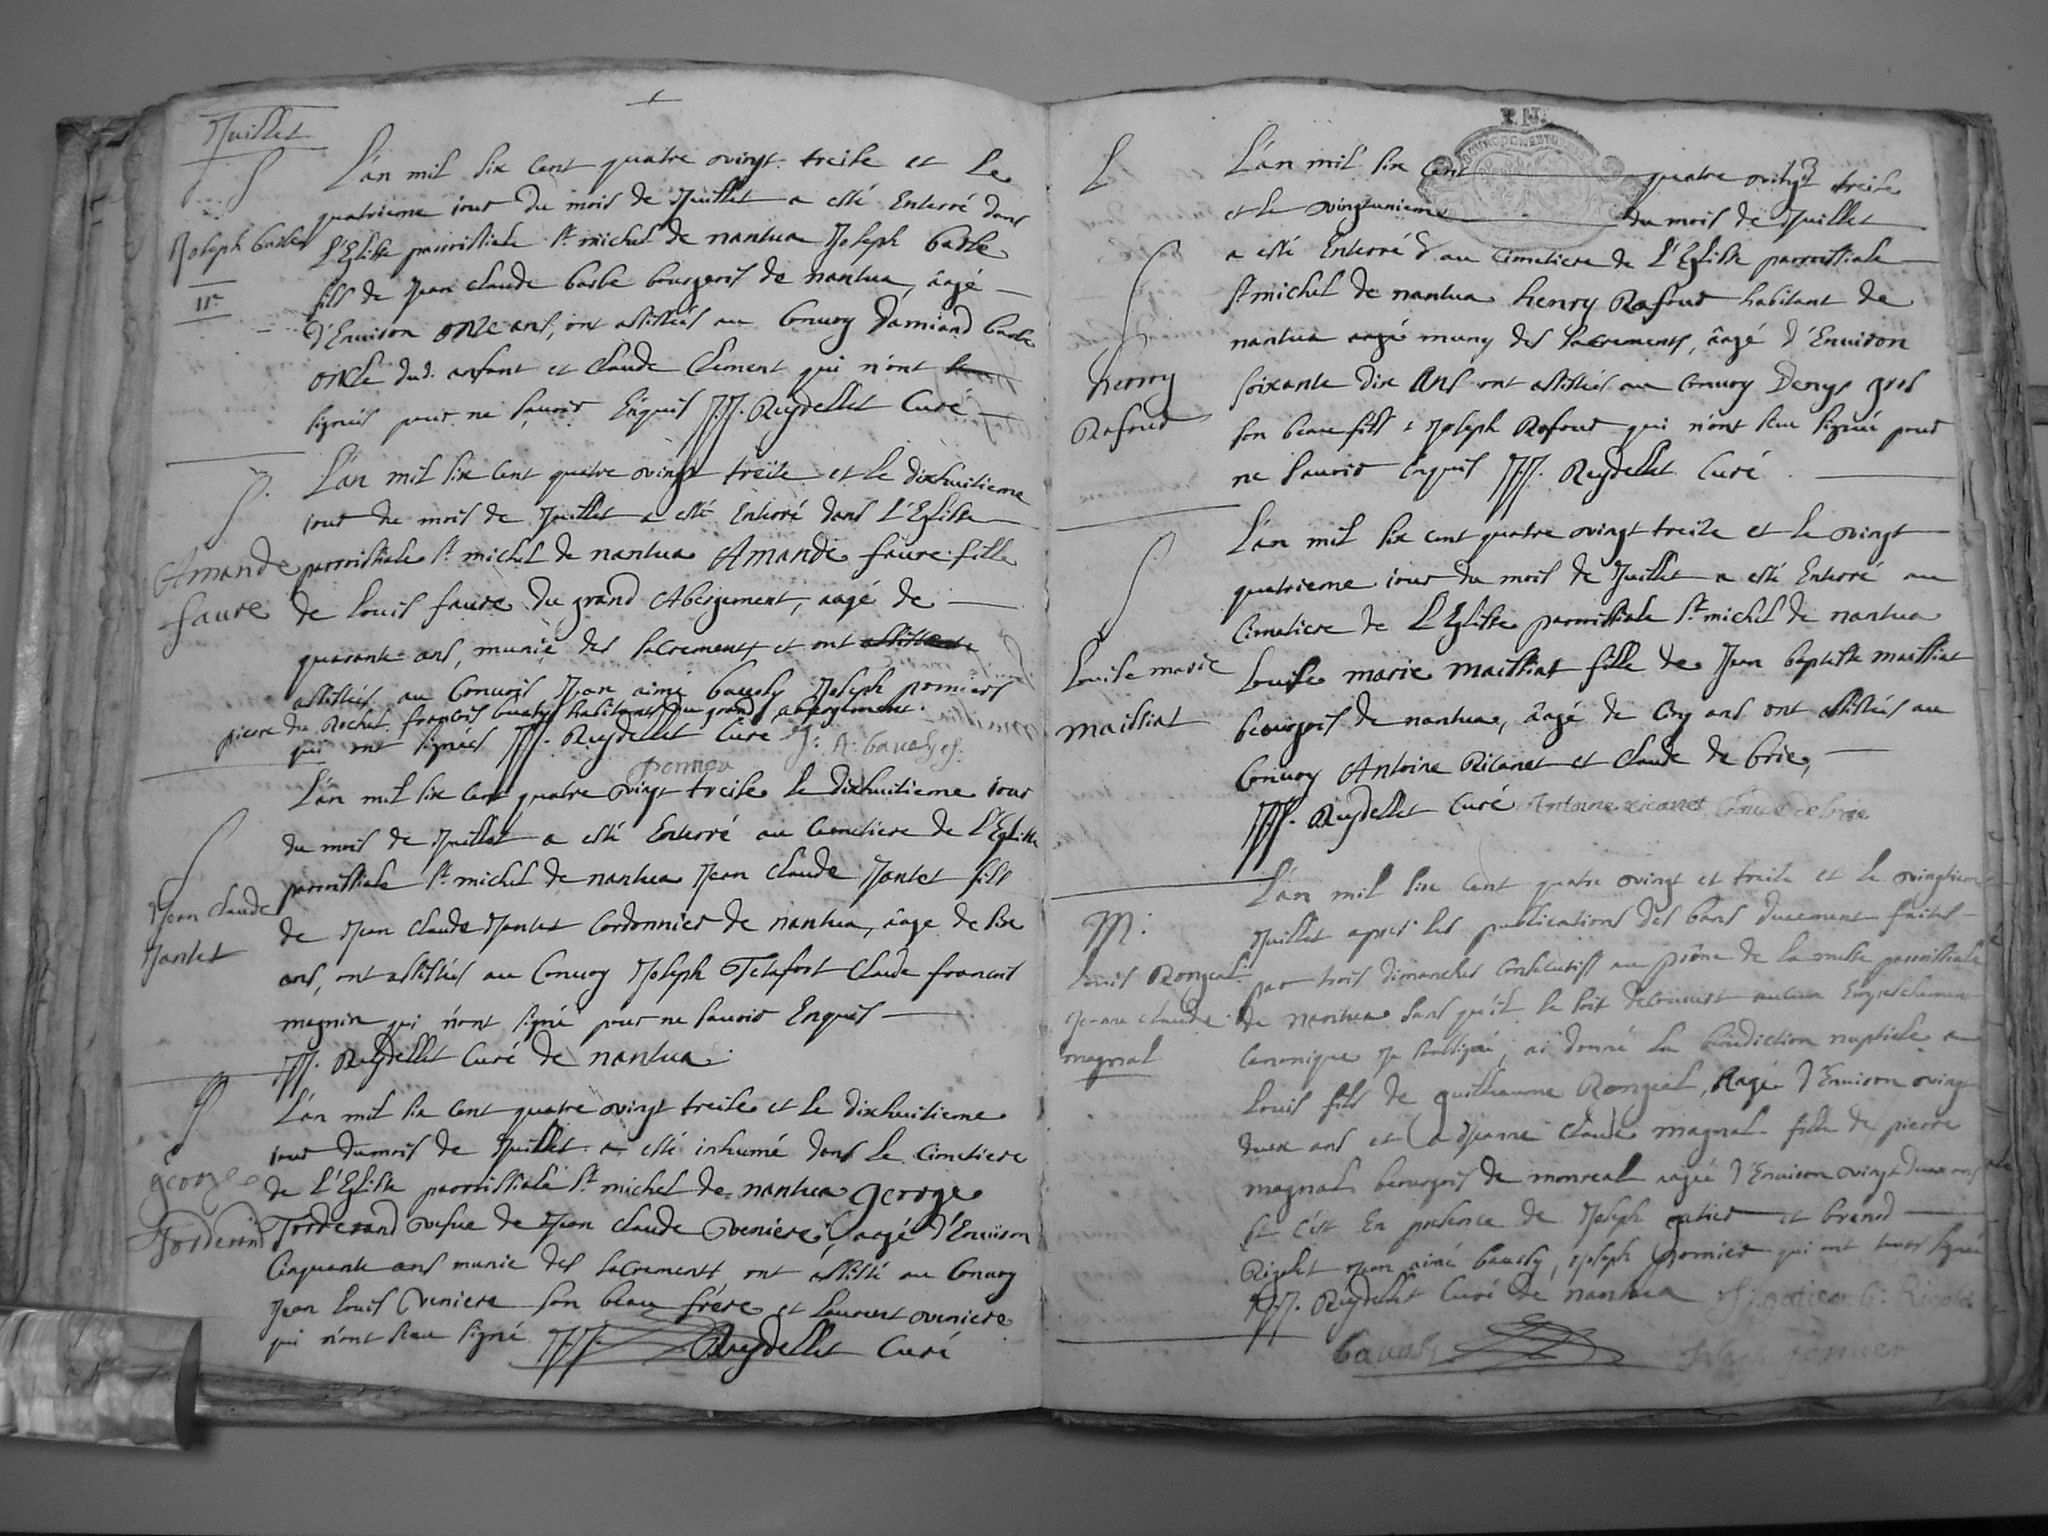 Juillet
S
Joseph barbe
11e
L'án mil six cent quatre vingt treise et le
quatrieme jour du mois de Juillet a esté Enterré dans
l'Eglise parroissiale St michel de nantua Joseph barbe
fils de Jean claude barbe bourgeois de nantua, âagé
d'Environ onze ans, ont assistés au Convoy Damiand barbe
oncle dud. anfant et Claude Clement qui n'ont
signés pour ne sçavoir Enquis JJ. Reydellet Curé
S.
Amande
faure
L'án mil six Cent quatre vingt treize et le dixhuitieme
jour du mois de Juillet a esté Enterré dans L'Eglise
parroissiale St michel de nantua Amande faure fille
de Louis faure du grand Abergement, aagé de
quarante ans, munie des sacrements et ont
assistés au Convois Jean aimé bavossy Joseph pomiers
pierre du Rochet françois habitants du grand abergement
qui ont signés JJ. Reydellet Curé J: A: bavossy
pomier
S
Jean claude
Jantet
L'án mil six Cent quatre vingt treise le dixhuitieme jour
du mois de Juillet a esté Enterré au Cimetiere de L'Eglise
parroissiale St michel de nantua Jean Claude Jantet fils
de Jean Claude Jantet Cordonnier de nantua, âagé de six
ans, ont assistés au Convoy Joseph Tetafort Claude françois
magnin qui n'ont signé pour ne sçavoir Enquis
JJ. Reydellet Curé de nantua.
S
george
Torderand
L'án mil six Cent quatre vingt treise et le dixhuitieme
jour du mois de Juillet a esté inhumé dans le Cimetiere
de L'Eglise parroissiale St michel de nantua george
Torderand vefue de Jean Claude veniere, aagé d'Environ
Cinquante ans munie des sacrements ont assisté au Convoy
Jean Louis veniere son beau frére et Laurent veniere
qui n'ont sceu signé JJ. Reydellet Curé
P. N.
S
henry
Rafour
L'án mil six Cent quatre vingt treise
et le vingtunieme du mois de Juillet
a esté Enterré au Cimetiere de L'Eglise parroissiale
St michel de nantua henry Rafour habitant de
nantua aagé muny des sacrements, âagé d'Environ
soixante dix Ans ont assistés au Convoy Denys gros
son beau fils & Joseph Rafour qui n'ont sceu signés pour
ne sçavoir Enquis JJ. Reydellet Curé
S
Louise marie
maissiat
L'án mil six cent quatre vingt treize et le vingt
quatrieme jour du mois de Juillet a esté Enterré au
Cimetiere de L'Eglise parroissiale St michel de nantua
Louise marie maissiat fille de Jean baptiste maissiat
bourgeois de nantua, âagé de Cinq ans ont assistés au
Convoy Antoine Ricanet et Claude de brie,
JJ. Reydellet Curé Antoine ricanet Claude de brie
M:
Louis Rongeat
Jeanne claude
magnal
L'án mil six Cent quatre vingt et treise et le vingtieme
Juillet apres les publications des bans duement faites
par trois dimanches Consecutifs au prône de la messe parroissiale
de nantua sans qu'il se soit decouvert aucun Empeschement
Canonique Je soussigné, ai donné la bénédiction nuptiale a
Louis fils de guillaume Rongeat, Aagé d'Environ vingt
deux ans et a Jeanne Claude magnal fille de pierre
magnal bourgeois de monreal aagée d'Environ vingt deux ans
Et C'est En presence de Joseph gatier et brand
Rigolet Jean aimé bavossy, Joseph pomier qui ont tous signés
JJ. Reydellet Curé de nantua
bavossy Joseph pomier